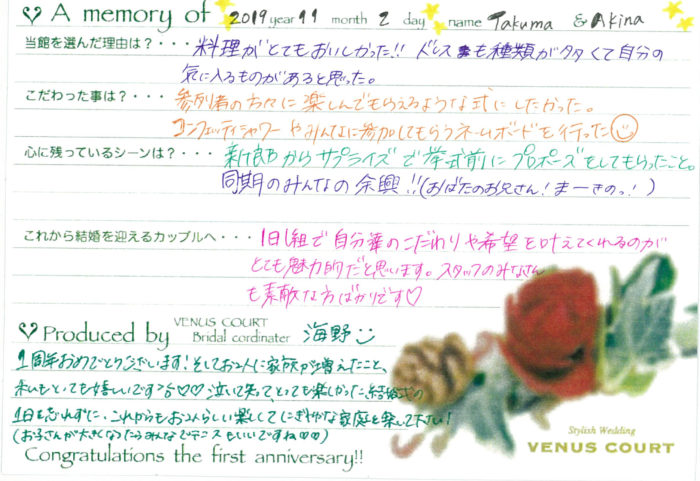 A memory of 2019 year 11 month 2 day name Takuma & Akina
当館を選んだ理由は？・・・料理がとてもおいしかった!! ドレスも種類が多くて自分の
気に入るものがあると思った。
こだわった事は？・・・参列者の方々に楽しんでもらえるような式にしたかった。
コンフェッティシャワーやみんなに参加してもらうネームボードも行った☺
心に残っているシーンは？・・・新郎からサプライズで挙式前にプロポーズをしてもらったこと。
同期のみんなの余興!!(おばたのお兄さん！まーきのっ！)
これから結婚を迎えるカップルへ・・・1日1組で自分達のこだわりや希望を叶えてくれるのが
とても魅力的だと思います。スタッフのみなさん
も素敵な方ばかりです♡
Produced by VENUS COURT Bridal cordinater 海野
1周年おめでとうございます！そしてお2人に家族が増えたこと、
私もとっても嬉しいです♡♡ 泣いて笑ってとっても楽しかった、結婚式の
1日を忘れずに、これからもお2人らしい楽しくてにぎやかな家庭を築いて下さい！
(お子さんが大きくなったらみんなでテニスもいいですね♡♡)
Congratulations the first anniversary!!
Stylish Wedding
VENUS COURT